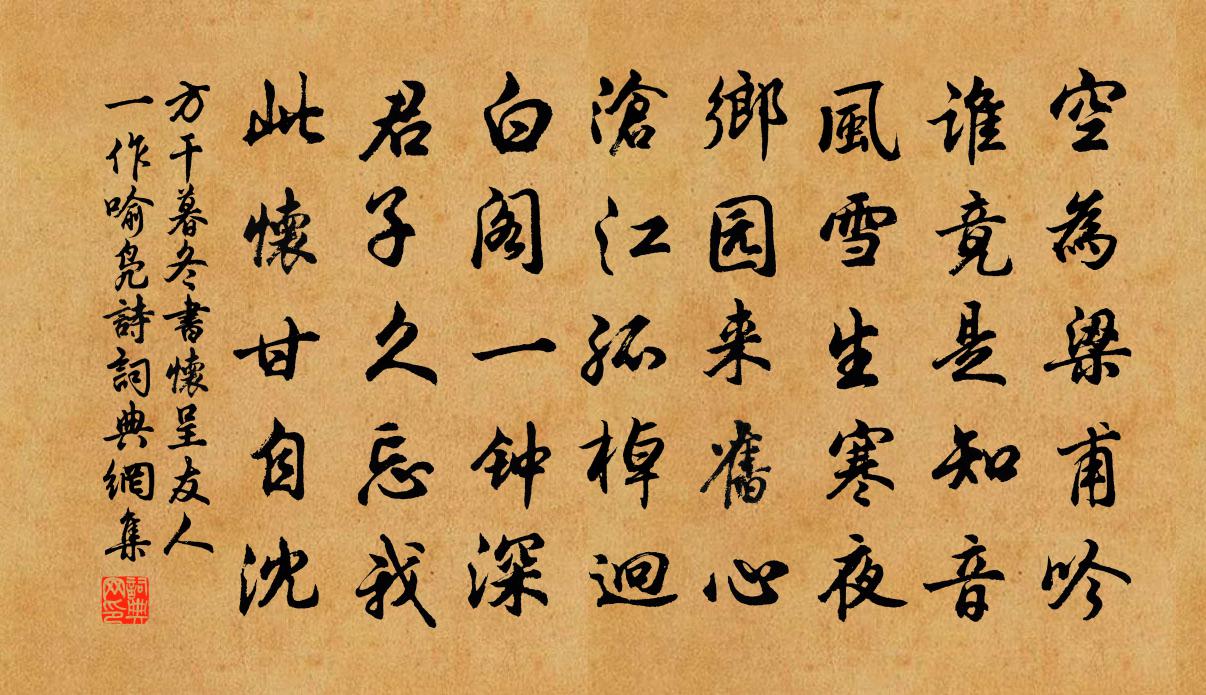 空為梁甫吟
谁竟是知音
風雪生寒夜
鄉园来舊心
滄江孤棹迥
白阁一钟深
君子久忘我
此懷甘自沈
方干暮冬書懷呈友人
一作喻凫詩詞典網集
詞典网印